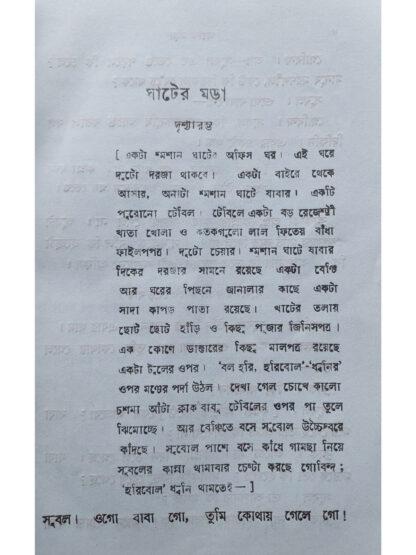 ঘাটের মড়া
দৃশ্যারম্ভ
[ একটা শ্মশান ঘাটের অফিস ঘর। এই ঘরে
দুটো দরজা থাকবে। একটা বাইরে থেকে
আসার, অন্যটা শ্মশান ঘাটে যাবার। একটি
পুরোনো টেবিল। টেবিলে একটা বড় রেজেস্ট্রী
খাতা খোলা ও কতকগুলো লাল ফিতেয় বাঁধা
ফাইলপপত্র। দুটো চেয়ার। শ্মশান ঘাটে যাবার
দিকের দরজার সামনে রয়েছে একটা বেঞ্চি
আর ঘরের পিছনে জানালার কাছে একটা
সাদা কাপড় পাতা রয়েছে। খাটের তলায়
ছোট ছোট হাঁড়ি ও কিছু পূজার জিনিসপত্র।
এক কোণে ডাক্তারের কিছু মালপত্র রয়েছে
একটা টুলের ওপর। 'বল হরি, হরিবোল'-ধ্বনির
ওপর মঞ্চের পর্দা উঠল। দেখা গেল চোখে কালো
চশমা আঁটা ক্লার্কবাবু টেবিলের ওপর পা তুলে
ঝিমোচ্ছে। আর বেঞ্চিতে বসে সুবোল উচ্চৈস্বরে
কাঁদছে। সুবোল পাশে বসে কাঁধে গামছা নিয়ে
সুবলের কান্না থামাবার চেষ্টা করছে গোবিন্দ;
'হরিবোল' ধ্বনি থামতেই—]
সুবল। ওগো বাবা গো, তুমি কোথায় গেলে গো!